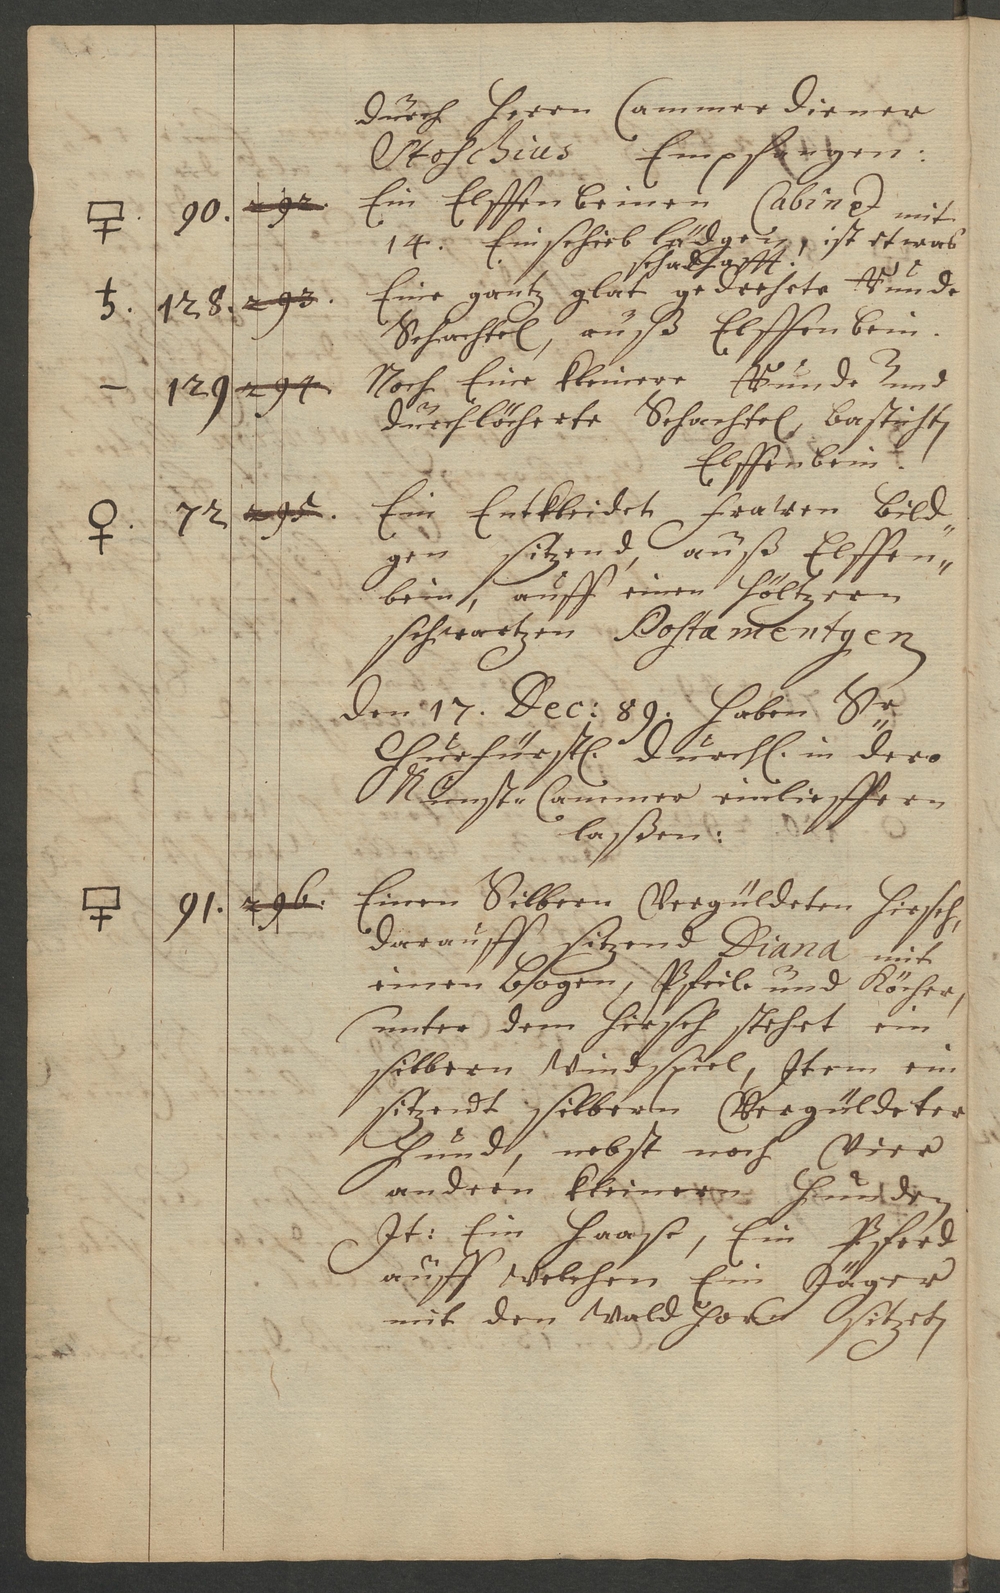 durch Herrn Cammerdiener
Stoschius Empfangen:
90. 292. Ein Elffenbeinen Cabinet mit
14. Einschieb lädgen, ist etwas
schadhafft.
♄. 128. 293. Eine gantz glat gedrehete Runde
Schachtel, auß Elffenbein.
– 129 294. Noch Eine kleinere Runde und
durchlöcherte Schachtel,
Elffenbein.
♀. 72 295. Ein Entkleidet Frawen Bild„
gen sitzend, auß Elffen„
bein, auff einen höltzern
schwartzen Postamentgen
Den 17. Dec: 89. haben Sr
Churfürstl. Durchl. in dero
Kunst-Cammer einlieffern
laßen:
91. 296. Einen Silbern Vergüldeten Hirsch,
darauff sitzend Diana mit
einen Bogen, Pfeile und Köcher,
unter dem Hirsch stehet ein
silbern Windspiel, Item ein
sitzendt silbern Vergüldeter
Hund, nebst noch Vier
andern kleinern Hunden
It: Ein Haase, Ein Pferd
auff welchen Ein Jäger
mit den Waldhorn sitzet